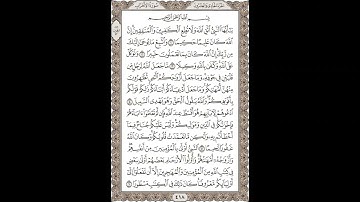 سورة الأحزاب
الجزء الحادي والعشرون
بِسْمِ ٱللَّهِ ٱلرَّحْمَٰنِ ٱلرَّحِيمِ
يَٰٓأَيُّهَا ٱلنَّبِىُّ ٱتَّقِ ٱللَّهَ وَلَا تُطِعِ ٱلْكَٰفِرِينَ وَٱلْمُنَٰفِقِينَ إِنَّ
ٱللَّهَ كَانَ عَلِيمًا حَكِيمًا ١ وَٱتَّبِعْ مَا يُوحَىٰٓ إِلَيْكَ
مِن رَّبِّكَ إِنَّ ٱللَّهَ كَانَ بِمَا تَعْمَلُونَ خَبِيرًا ٢ وَتَوَكَّلْ
عَلَى ٱللَّهِ وَكَفَىٰ بِٱللَّهِ وَكِيلًا ٣ مَّا جَعَلَ ٱللَّهُ لِرَجُلٍ مِّن
قَلْبَيْنِ فِى جَوْفِهِۦ وَمَا جَعَلَ أَزْوَٰجَكُمُ ٱلَّٰٓـِٔى تُظَٰهِرُونَ
مِنْهُنَّ أُمَّهَٰتِكُمْ وَمَا جَعَلَ أَدْعِيَآءَكُمْ أَبْنَآءَكُمْ ذَٰلِكُمْ قَوْلُكُم
بِأَفْوَٰهِكُمْ وَٱللَّهُ يَقُولُ ٱلْحَقَّ وَهُوَ يَهْدِى ٱلسَّبِيلَ ٤
ٱدْعُوهُمْ لِءَابَآئِهِمْ هُوَ أَقْسَطُ عِندَ ٱللَّهِ فَإِن لَّمْ تَعْلَمُوٓا۟ ءَابَآءَهُمْ
فَإِخْوَٰنُكُمْ فِى ٱلدِّينِ وَمَوَٰلِيكُمْ وَلَيْسَ عَلَيْكُمْ جُنَاحٌ فِيمَآ
أَخْطَأْتُم بِهِۦ وَلَٰكِن مَّا تَعَمَّدَتْ قُلُوبُكُمْ وَكَانَ
ٱللَّهُ غَفُورًا رَّحِيمًا ٥ ٱلنَّبِىُّ أَوْلَىٰ بِٱلْمُؤْمِنِينَ مِنْ أَنفُسِهِمْ
وَأَزْوَٰجُهُۥٓ أُمَّهَٰتُهُمْ وَأُو۟لُوا۟ ٱلْأَرْحَامِ بَعْضُهُمْ أَوْلَىٰ بِبَعْضٍ
فِى كِتَٰبِ ٱللَّهِ مِنَ ٱلْمُؤْمِنِينَ وَٱلْمُهَٰجِرِينَ إِلَّآ أَن تَفْعَلُوٓا۟
إِلَىٰٓ أَوْلِيَآئِكُم مَّعْرُوفًا كَانَ ذَٰلِكَ فِى ٱلْكِتَٰبِ مَسْطُورًا ٦
٤١٨